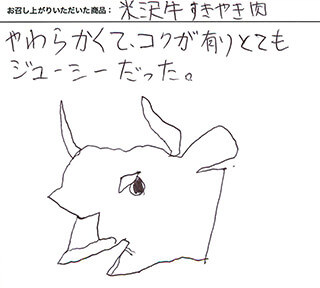 お召し上がりいただいた商品： 米沢牛すきやき肉
やわらかくて、コクが有りとても
ジューシーだった。